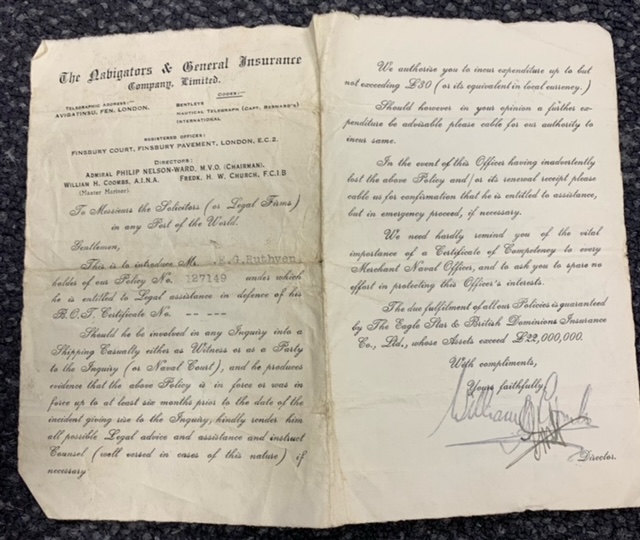 The Navigators & General Insurance
Company, Limited.
TELEGRAPHIC ADDRESS:—
AVIGATINSU, FEN, LONDON.
CODES:—
BENTLEYS
NAUTICAL TELEGRAPH (CAPT. BERNARD'S)
INTERNATIONAL
REGISTERED OFFICES:
FINSBURY COURT, FINSBURY PAVEMENT, LONDON, E.C.2.
DIRECTORS:
ADMIRAL PHILIP NELSON-WARD, M.V.O. (CHAIRMAN).
WILLIAM H. COOMBS, A.I.N.A. FREDK. H. W. CHURCH, F.C.I.B
(Master Mariner).
To Messieurs the Solicitors (or Legal Firms)
in any Part of the World.
Gentlemen,
This is to introduce Mr. .G.Ruthven
holder of our Policy No. 127149 under which
he is entitled to Legal assistance in defence of his
B.O.T. Certificate No. - - ----
Should he be involved in any Inquiry into a
Shipping Casualty either as Witness or as a Party
to the Inquiry (or Naval Court), and he produces
evidence that the above Policy is in force or was in
force up to at least six months prior to the date of the
incident giving rise to the Inquiry, kindly render him
all possible Legal advice and assistance and instruct
Counsel (well versed in cases of this nature) if
necessary
We authorise you to incur expenditure up to but
not exceeding £30 (or its equivalent in local currency.)
Should however in your opinion a further ex-
penditure be advisable please cable for our authority to
incur same.
In the event of this Officer having inadvertently
lost the above Policy and/or its renewal receipt please
cable us for confirmation that he is entitled to assistance,
but in emergency proceed, if necessary.
We need hardly remind you of the vital
importance of a Certificate of Competency to every
Merchant Naval Officer, and to ask you to spare no
effort in protecting this Officer's interests.
The due fulfilment of all our Policies is guaranteed
by The Eagle Star & British Dominions Insurance
Co., Ltd., whose Assets exceed £22,000,000.
With compliments,
Yours faithfully
William H Coombs
Director.